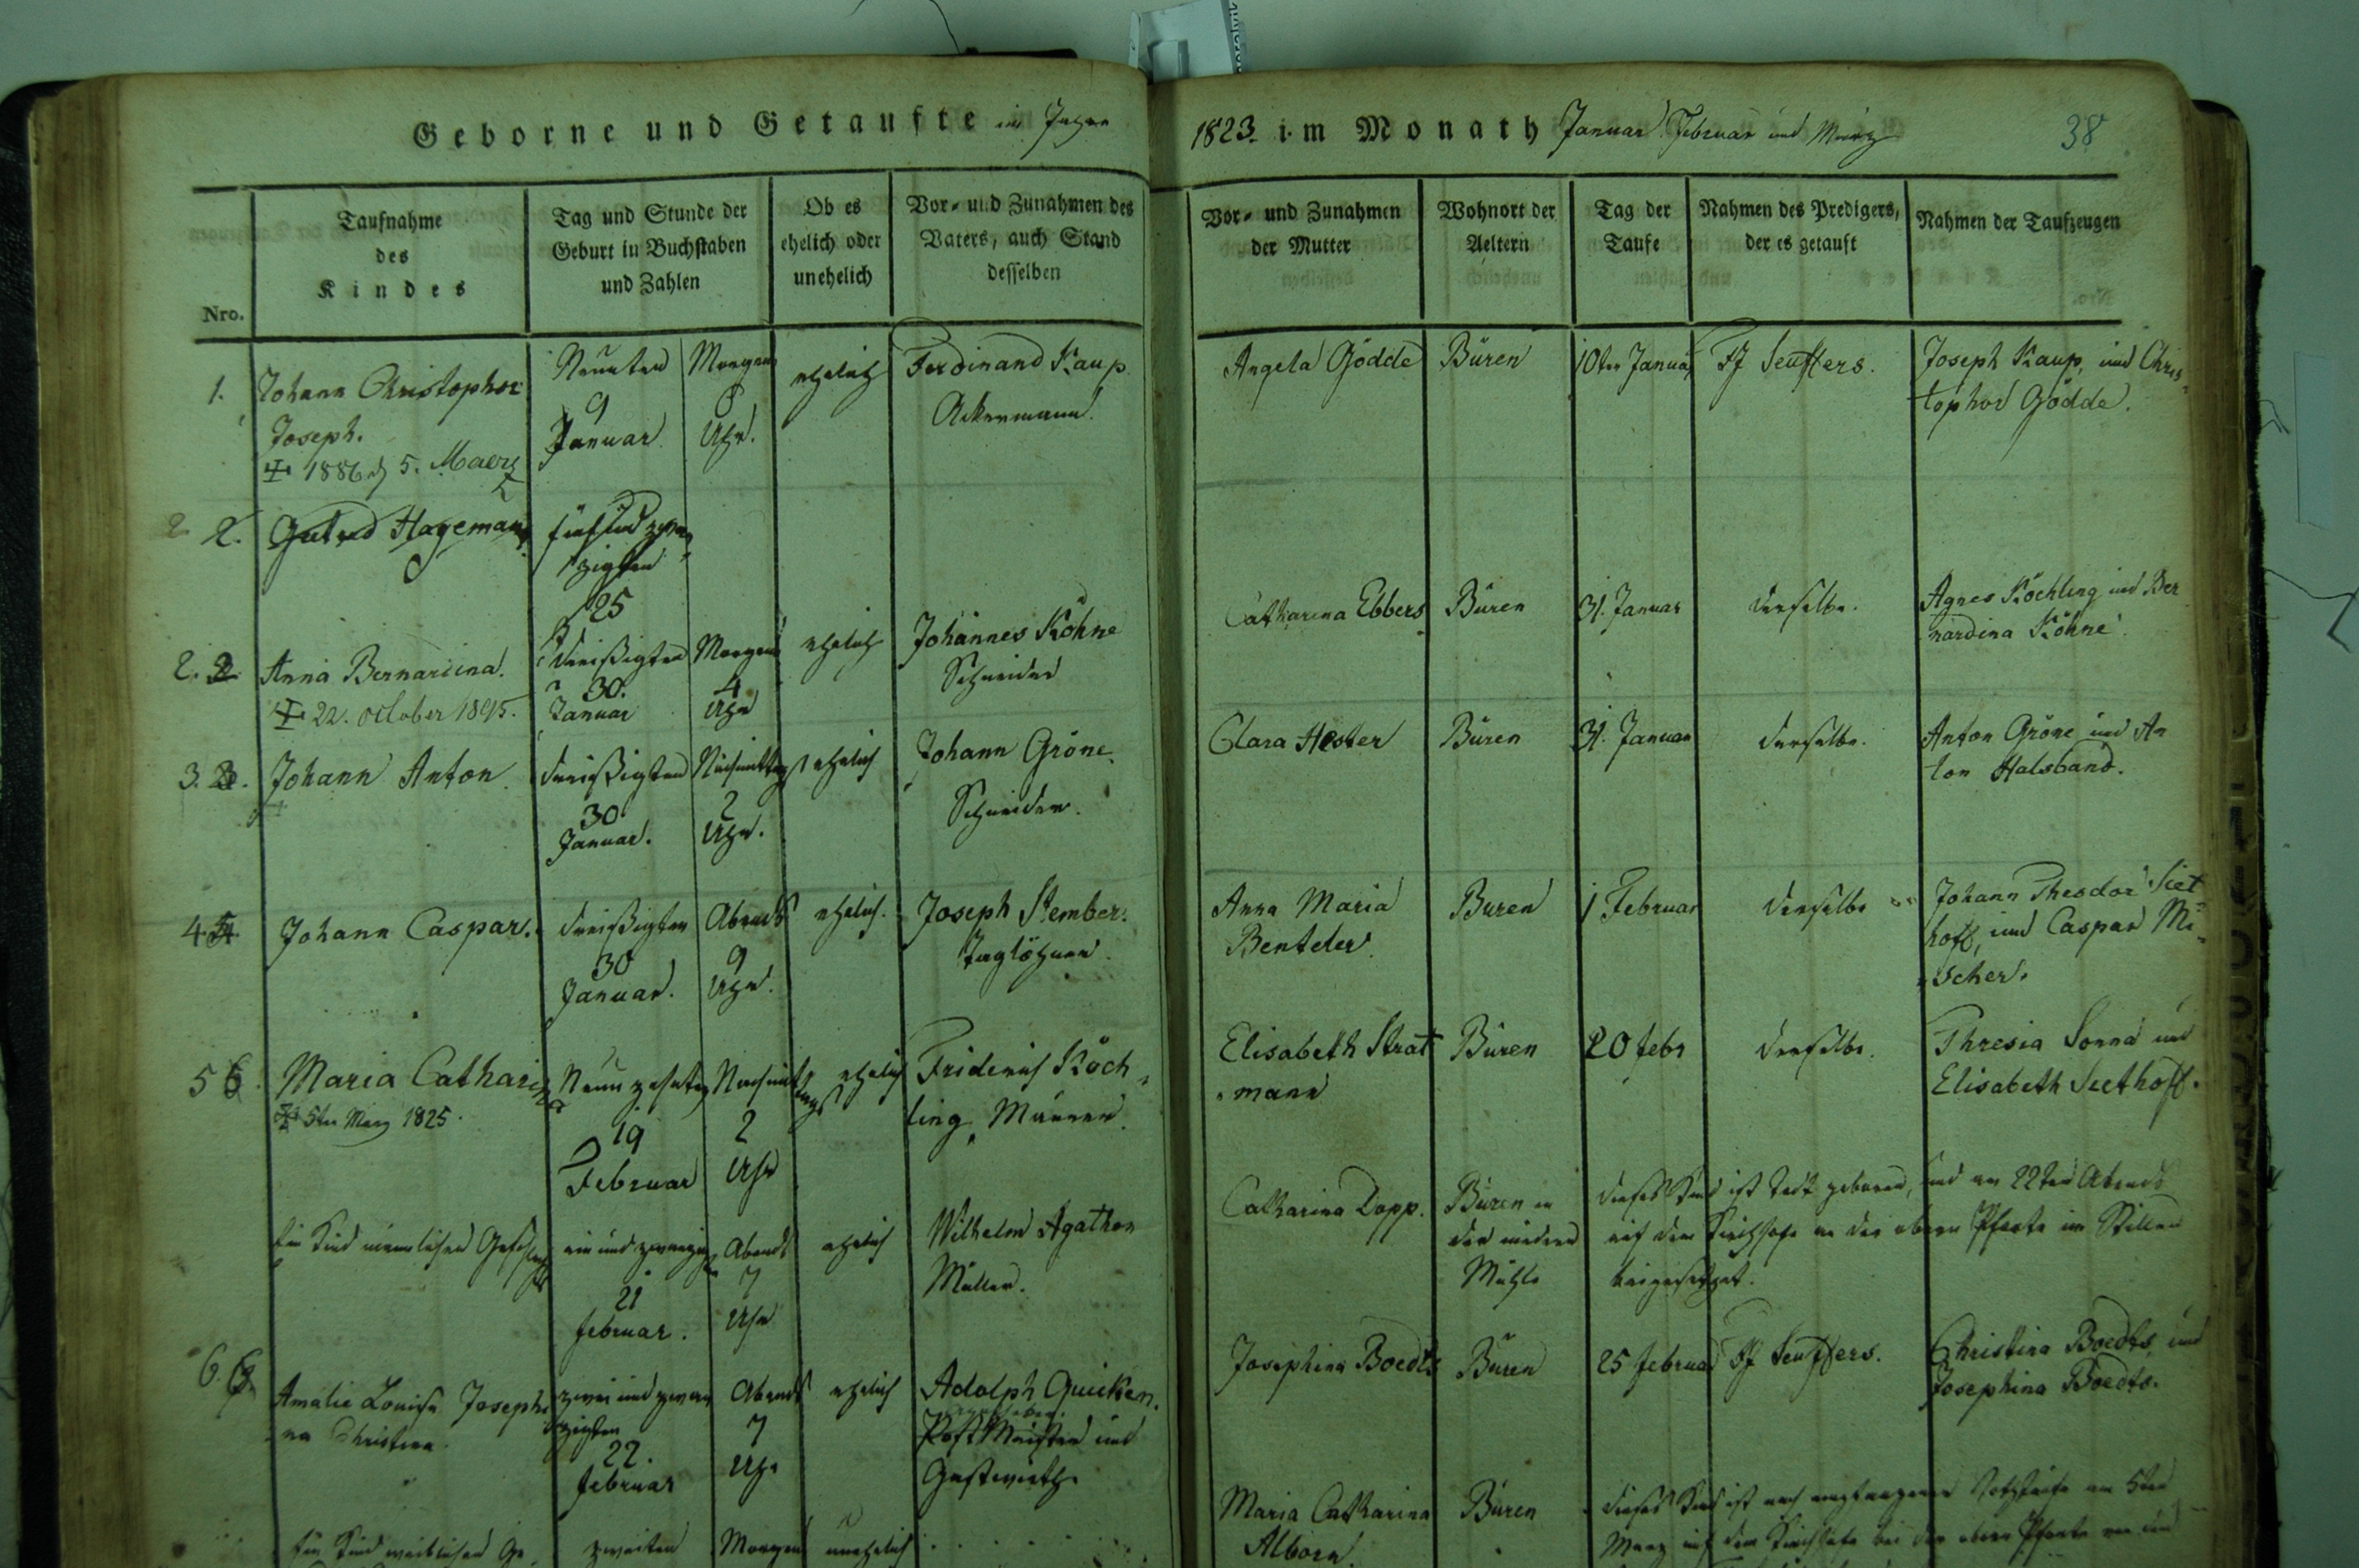 Geborne und Getaufte im Jahre
1823 im Monath Januar Februar und März
38
Nro.
Taufnahme
des
Kindes
Tag und Stunde der
Geburt in Buchstaben
und Zahlen
Ob es
ehelich oder
unehelich
Vor- und Zunahmen des
Vaters, auch Stand
desselben
Vor- und Zunahmen
der Mutter
Wohnort der
Aeltern
Tag der
Taufe
Nahmen des Predigers,
der es getauft
Nahmen der Taufzeugen
1.
Johann Christopher
Joseph.
1886 5. Maerz
Neunten
9
Januar
Morgens
8
Uhr.
ehelich
Ferdinand Kaup.
Ackermann.
Angela Gödde
Büren
10ten Januar
Seuffers.
Joseph Kaup, und Chris
tophor Gödde.
2 2.
Hagemann
fünf und zwan
zigsten
25
2. 2
Anna Bernardina.
22. October 1895.
dreißigten
30.
Januar
Morgens
4
Uhr
ehelich
Johannes Köhne
Schneider
Catharina Ebbers
Büren
31. Januar
derselbe.
Agnes Köchling und Ber
nardina Köhne.
3.
Johann Anton.
dreißigten
30
Januar.
Nachmittags
2
Uhr.
ehelich
Johann Gröne.
Schneider.
Clara Hester
Büren
31. Januar
derselbe.
Anton Gröne und An
ton Halsband.
4.
Johann Caspar.
dreißigten
30
Januar.
Abends
9
Uhr.
ehelich.
Joseph Stember.
Taglöhner.
Anna Maria
Benteler.
Buren
1 Februar
derselbe
Johann Theodor Siet
hoff, und Caspar Mi
scher.
5 6.
Maria Catharina
5ten März 1825.
Neunzehnten
19
Februar
Nachmittags
2
Uhr
ehelich
Friderich Köch
ling, Maurer.
Elisabeth Strat
mann
Büren
20 febr
derselbe.
Thresia Sonna und
Elisabeth Seethoff.
Ein Kind männlichen Geschlechts
ein und zwanzig
21
februar.
Abends
7
Uhr
ehelich
Wilhelm Agathon
Müller.
Catharina Dopp.
Büren in
der niedern
Mühle
dieses Kind ist todt geboren, und am 22ten Abends
auf dem Kirchhofe an der obern Pforte im Stillen
beigesetzet.
6.
Amalie Louise Josephi
na Christina.
zwei und zwan
zigsten
22.
februar
Abends
7
Uhr
ehelich
Adolph Quicken.
Post und
Gastwirth.
Josephina Boedts
Büren
25 februar
Seuffers.
Christina Boedts, und
Josephina Boedts.
Ein Kind weiblichen Ge
zweiten
Morgens
unehelich
Maria Catharina
Alborn.
Büren
dieses Kind ist nach empfangener Nothtaufe am 5ten
März auf dem Kirchhofe bei der obern Pforte